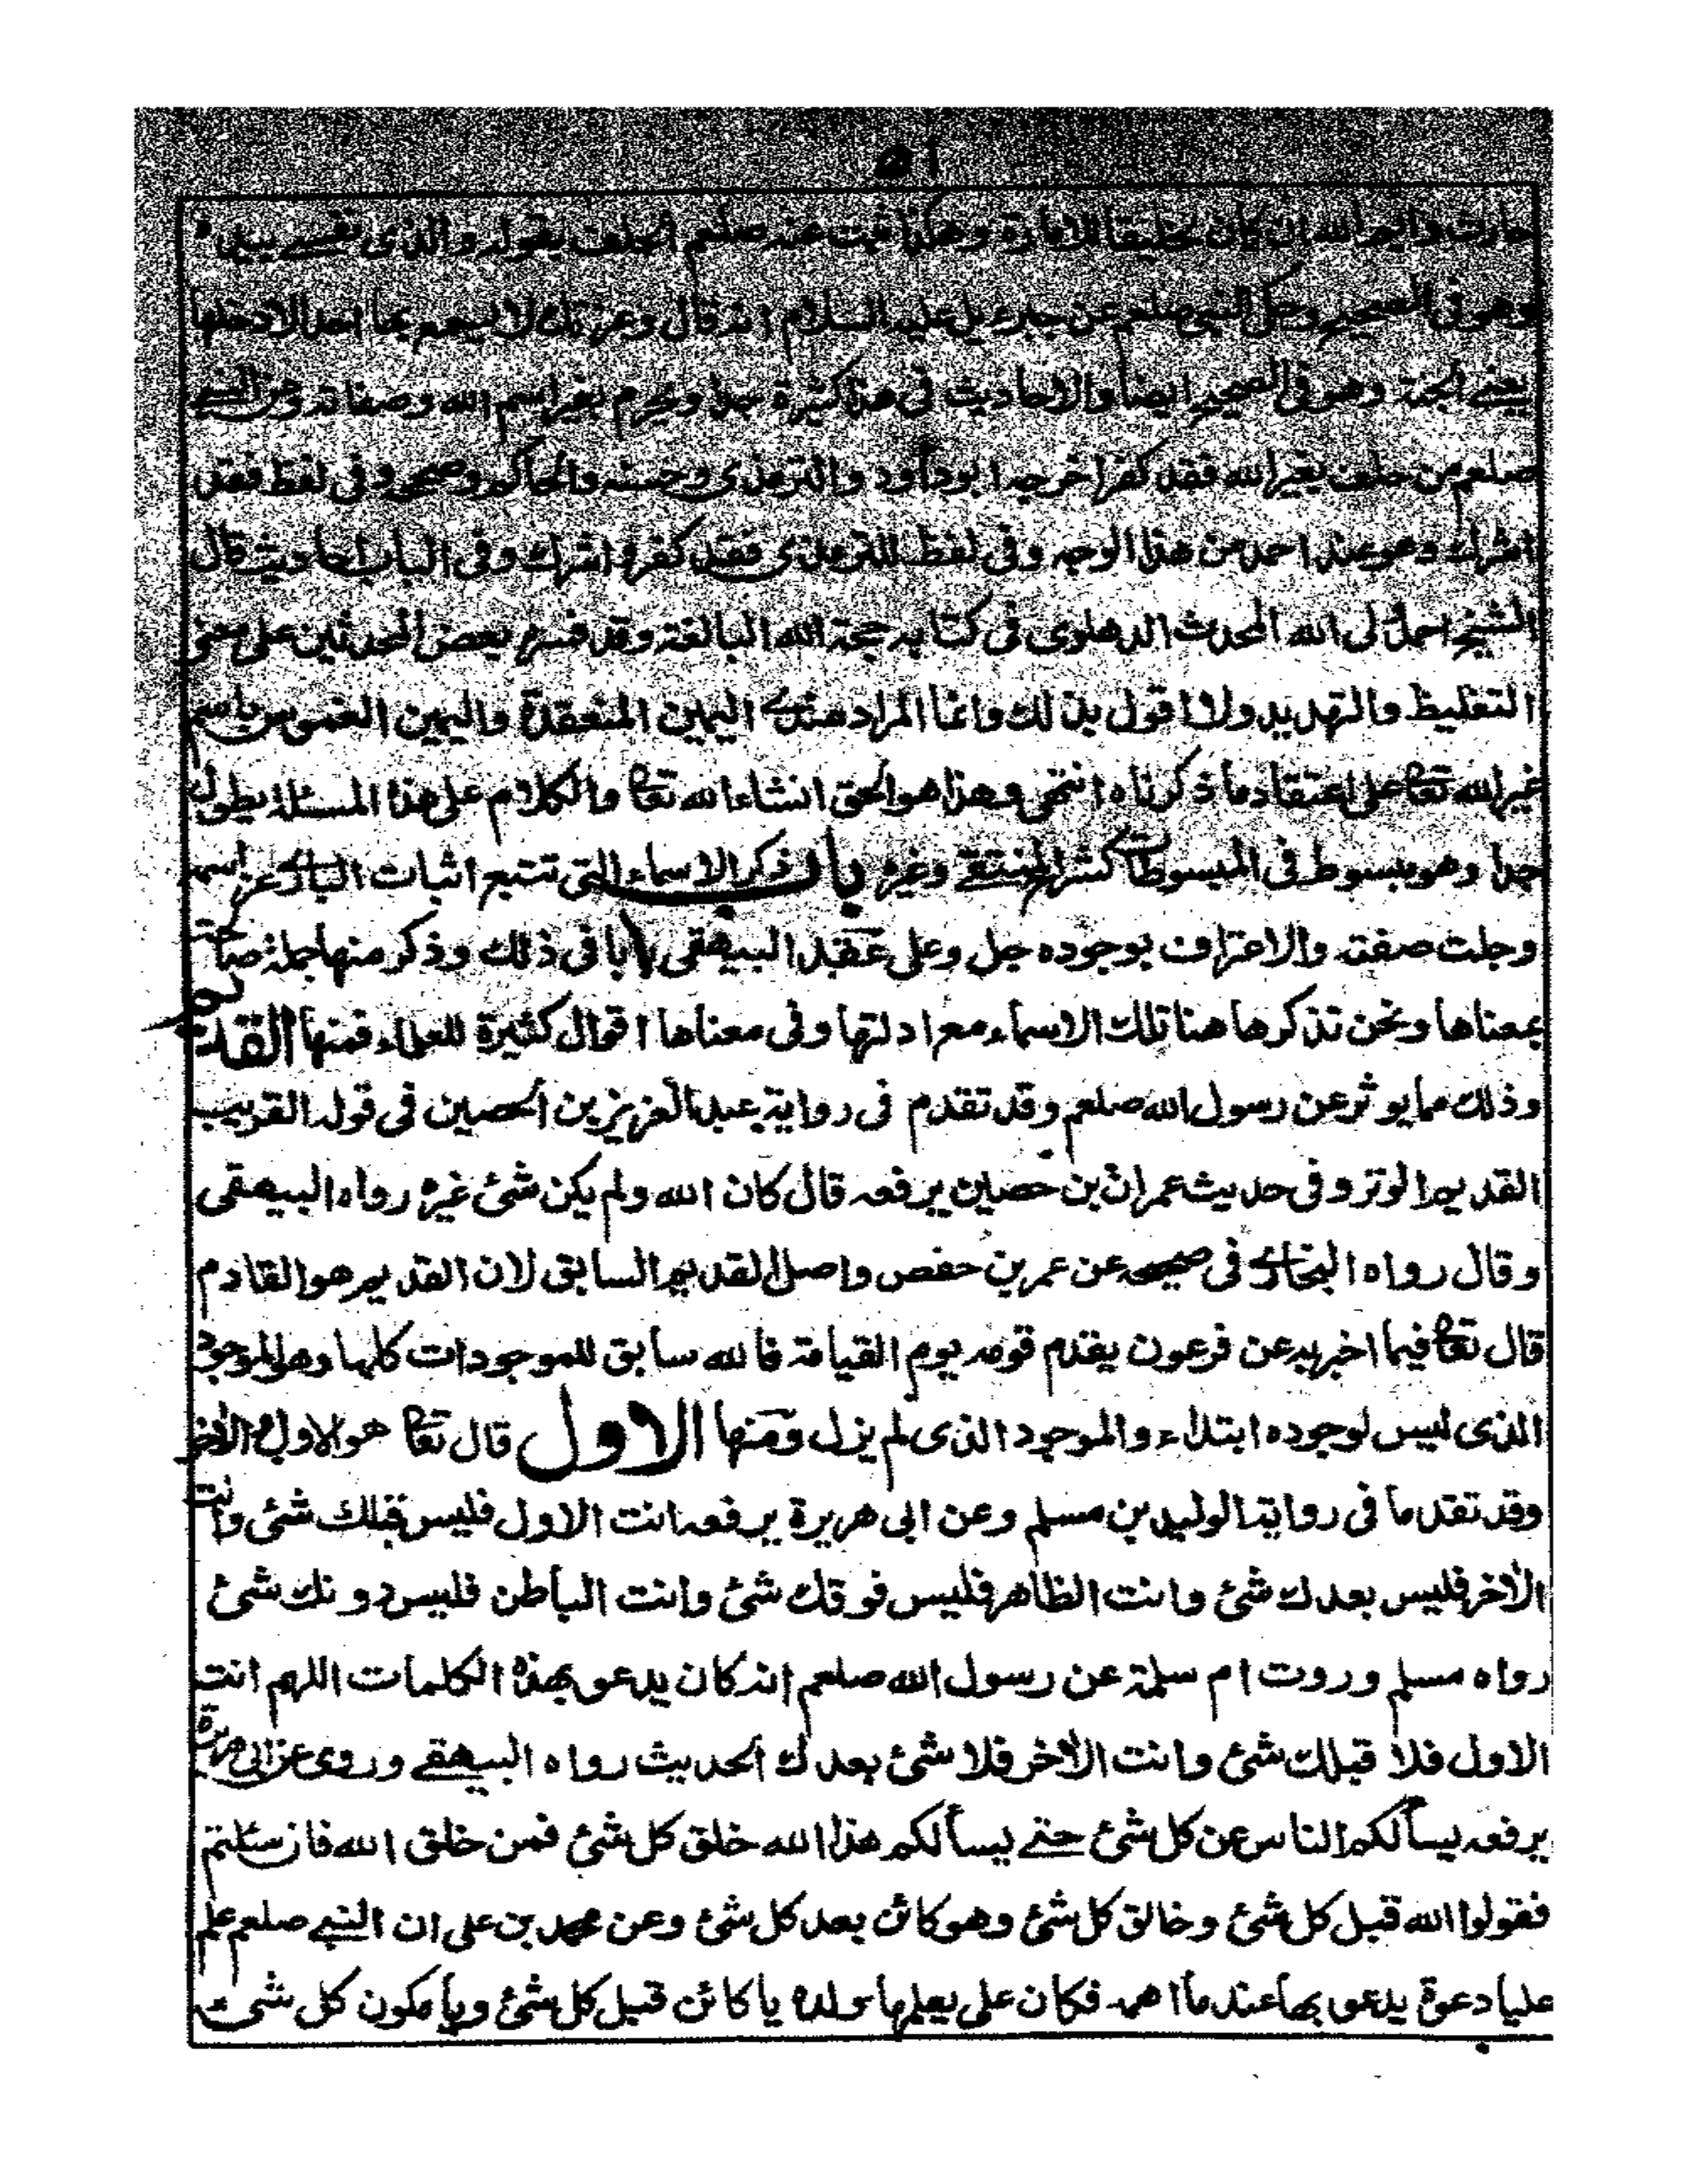 ٥١
حارث وايم الله ان كان لخليقا للامارة وهكذا ثبت عنه صلعم الحلف بقوله والذى نفسى بيده
وهو فى الصحيح وحكى النبى صلعم عن جبرئيل عليه السلام انه قال وعزتك لا يسمع بها احد الا دخلها
يعنى الجنة وهو فى الصحيح ايضا والاحاديث فى هذا كثيرة جدا ويحرم بغير اسم الله وصفاته
صلعم من حلف بغير الله فقد كفر اخرجه ابوداود والترمذى وحسنه والحاكم وصححه وفى لفظ فقد
اشرك وهو عند احمد من هذا الوجه وفى لفظ للترمذى فقد كفر واشرك وفى الباب احاديث قال
الشيخ احمد ولى الله المحدث الدهلوى فى كتابه حجة الله البالغة وقد فسره بعض المحدثين على معنى
التغليظ والتهديد ولا اقول بذلك وانما المراد عندى اليمين المنعقدة واليمين الغموس باسم
غير الله تعالى على اعتقاد ما ذكرناه انتهى وهذا هو الحق انشاء الله تعالى والكلام على هذه المسئلة يطول
جدا وهو مبسوط فى المبسوطات كشرح المنتقى وغيره باب ذكر الاسماء التى تتبع اثبات البارى عز اسمه
وجلت صفته والاعتراف بوجوده جل وعلى عقد البيهقى بابا فى ذلك وذكر منها جملة صالحة
بمعناها ونحن نذكرها هنا تلك الاسماء مع ادلتها وفى معناها اقوال كثيرة للعلماء فمنها القديم
وذلك مما يوثر عن رسول الله صلعم وقد تقدم فى رواية عبد العزيز بن الحصين فى قوله القريب
القديم الوتر وفى حديث عمران بن حصين يرفعه قال كان الله ولم يكن شئ غيره رواه البيهقى
وقال رواه البخارى فى صحيحه عن عمر بن حفص واصل القديم السابق لان القديم هو القادم
قال تعالى فيما اخبر به عن فرعون يقدم قومه يوم القيامة فالله سابق للموجودات كلها وهو الموجود
الذى ليس لوجوده ابتداء والموجود الذى لم يزل ومنها الاول قال تعالى هو الاول والآخر
وقد تقدما فى رواية الوليد بن مسلم وعن ابى هريرة يرفعه انت الاول فليس قبلك شئ وانت
الآخر فليس بعدك شئ وانت الظاهر فليس فوقك شئ وانت الباطن فليس دونك شئ
رواه مسلم وروت ام سلمة عن رسول الله صلعم انه كان يدعو بهذه الكلمات اللهم انت
الاول فلا قبلك شئ وانت الآخر فلا شئ بعدك الحديث رواه البيهقى وروى عن ابى هريرة
يرفعه يسألكم الناس عن كل شئ حتى يسألكم هذا الله خلق كل شئ فمن خلق الله فان سئلتم
فقولوا الله قبل كل شئ وخالق كل شئ وهو كائن بعد كل شئ وعن محمد بن على ان النبى صلعم علم
عليا دعوة يدعو بها عند ما اهمه فكان على يعلمها ولده يا كائن قبل كل شئ ويا مكون كل شئ